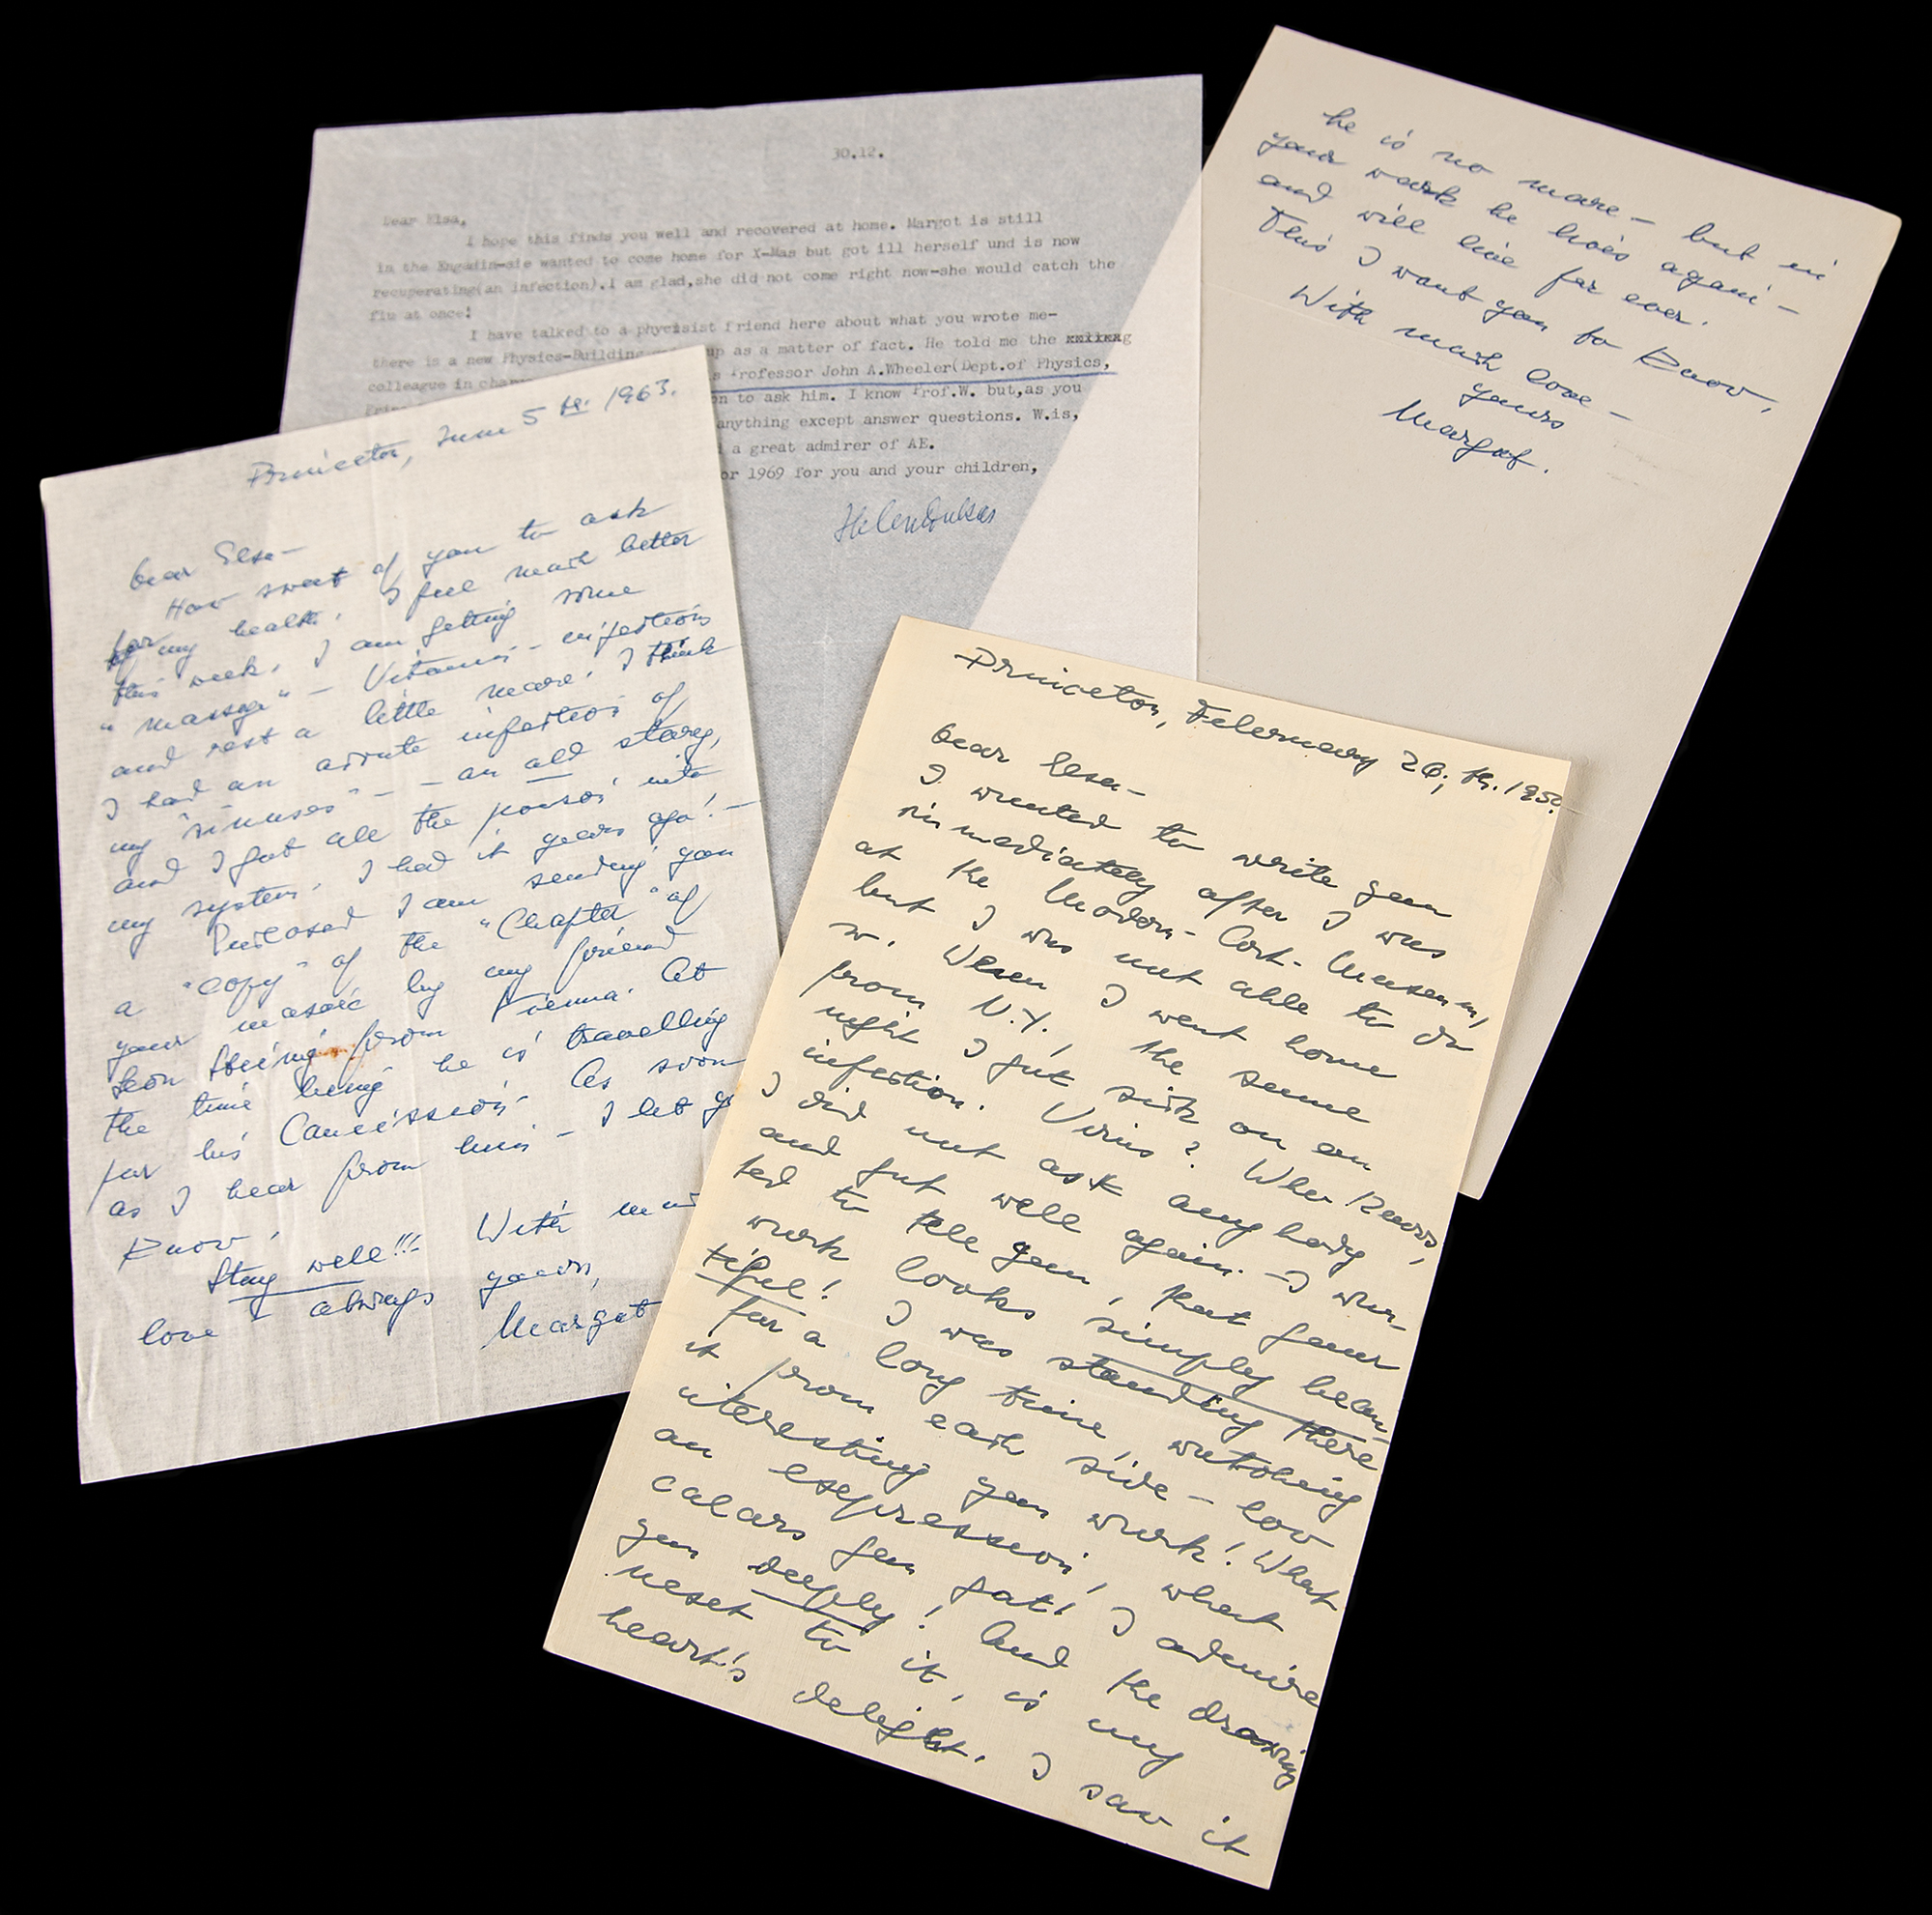 30.12.
Dear Elsa,
I hope this finds you well and recovered at home. Margot is still
in the Engadin-sie wanted to come home for X-Mas but got ill herself und is now
recuperating(an infection).I am glad,she did not come right now-she would catch the
flu at once!
I have talked to a physisist friend here about what you wrote me-
there is a new Physics-Building up as a matter of fact. He told me the
colleague in Professor John A.Wheeler(Dept.of Physics,
to ask him. I know Prof.W. but,as you
anything except answer questions. W.is,
a great admirer of AE.
1969 for you and your children,
Helen Dukas
he is no more - but in
your work he lives again -
and will live for ever.
This I want you to know.
With much love -
yours
Margot.
Princeton, June 5th. 1963.
Dear Elsa -
How sweet of you to ask
for my health. I feel much better
this week. I am getting some
"massage" - Vitamin - injections
and rest a little more. I think
I had an accute infection of
my "sinuses" - - an old story,
and I got all the poison into
my system. I had it years ago! -
Enclosed I am sending you
a "copy" of the "Chapter" of
your mosaic by my friend
Leon from Vienna. At
the time being he is travelling
for his As soon
as I hear from him - I let
know.
Stay well!!! With
love I always yours,
Margot
Princeton, February 1950.
Dear Elsa -
I wanted to write you
immediately after I was
at the Modern - Art - Museum,
but I was not able to do
so. When I went home
from N.Y., the same
night I got sick on an
infection. Virus? Who knows,
I did not ask anybody,
and got well again. - I wan-
ted to tell you, that your
work looks simply beau-
tiful! I was standing there
for a long time, watching
it from each side - how
interesting you work! What
an expression, what
colors you got! I admire
you deeply! And the drawing
next to it, is my
heart's delight. I saw it